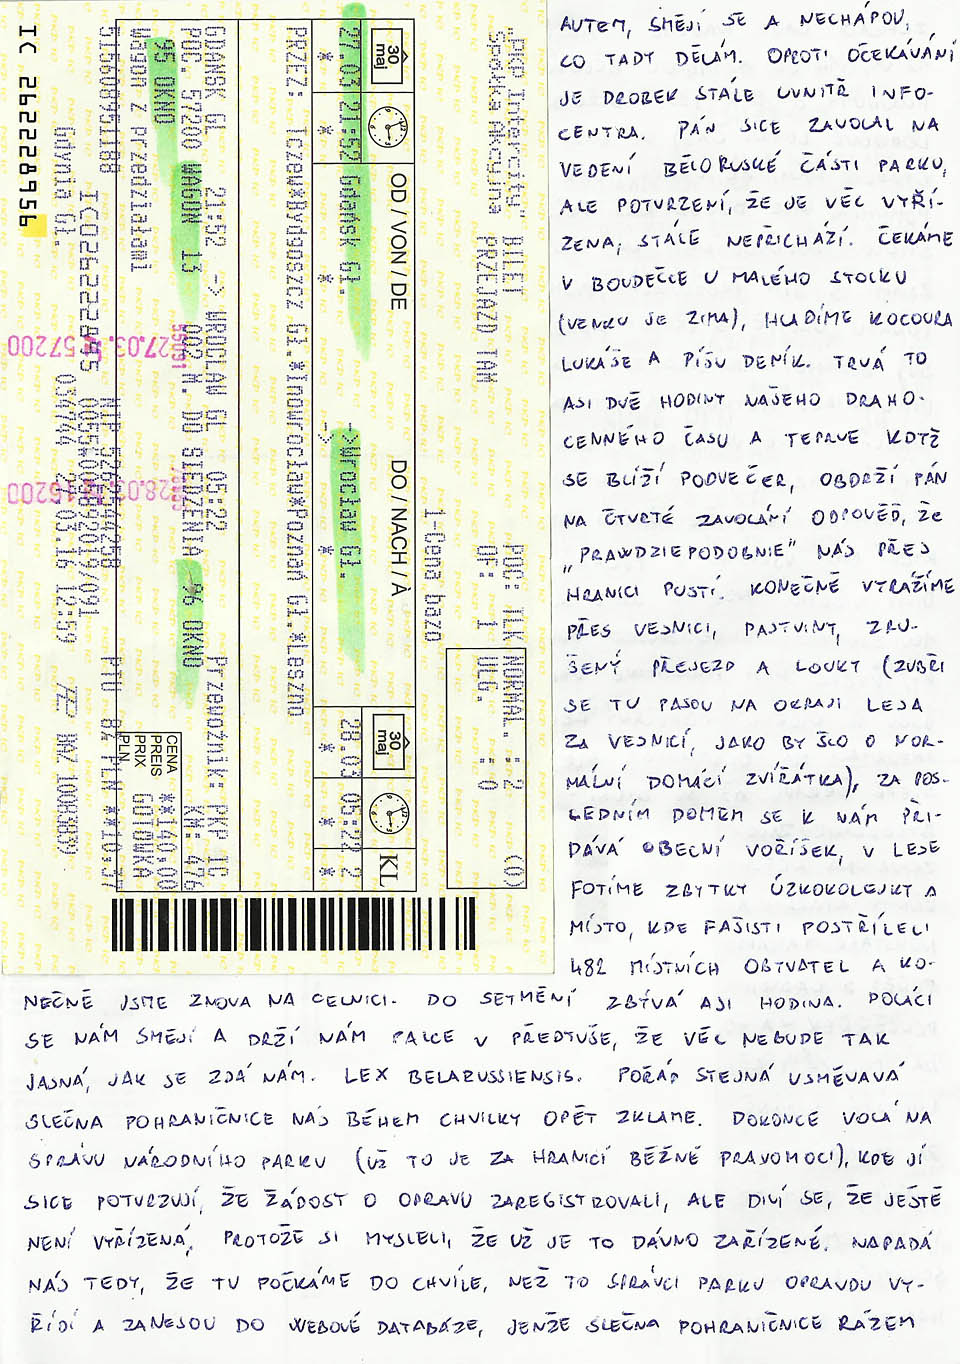 "PKP Intercity"
Spółka Akcyjna
BILET
PRZEJAZD TAM
POC: TLK NORMAL. : 2
OF: 1 ULG. : 0
(O)
1-Cena bazo
OD / VON / DE
DO / NACH / À
KL
30 maj
30 maj
27.03 21:52 Gdańsk Gł. ->Wrocław Gł. 28.03 05:22 2
* * * -> * * * *
PRZEZ: Tczew*Bydgoszcz Gł.*Inowrocław*Poznań Gł.*Leszno
GDAŃSK GŁ 21:52 -> WROCŁAW GŁ 05:22 Przewoźnik: PKP IC
POC. 57200 WAGON 13 002 M. DO SIEDZENIA 96 OKNO KM: 476
95 OKNO
wagon z przedziałami
CENA
PREIS
PRIX
PLN
**140,00
GOTÓWKA
515608951188
PTU 8% PLN **10,37
IC026222895
NIP 5261544258
Gdynia Gł.
034744 27.03.16 12:59
IC 262228956
27.03. 57200
AUTEM, SMĚJÍ SE A NECHÁPOU,
CO TADY DĚLÁM. OPROTI OČEKÁVÁNÍ
JE DROBEK STÁLE UVNITŘ INFO-
CENTRA. PÁN SICE ZAVOLAL NA
VEDENÍ BĚLORUSKÉ ČÁSTI PARKU,
ALE POTVRZENÍ, ŽE JE VĚC VYŘÍ-
ZENA, STÁLE NEPŘICHÁZÍ. ČEKÁME
V BOUDEČCE U MALÉHO STOLKU
(VENKU JE ZIMA), HLADÍME KOCOURA
LUKÁŠE A PÍŠU DENÍK. TRVÁ TO
ASI DVĚ HODINY NAŠEHO DRAHO-
CENNÉHO ČASU A TEPRVE KDYŽ
SE BLÍŽÍ PODVEČER, OBDRŽÍ PÁN
NA ČTVRTÉ ZAVOLÁNÍ ODPOVĚĎ, ŽE
„PRAWDZIEPODOBNIE" NÁS PŘES
HRANICI PUSTÍ. KONEČNĚ VYRÁŽÍME
PŘES VESNICI, PASTVINY, ZRU-
ŠENÝ PŘEJEZD A LOUKY (ZUBŘI
SE TU PASOU NA OKRAJI LESA
ZA VESNICÍ, JAKO BY ŠLO O NOR-
MÁLNÍ DOMÁCÍ ZVÍŘÁTKA), ZA POS-
LEDNÍM DOMEM SE K NÁM PŘI-
DÁVÁ OBECNÍ VOŘÍŠEK, V LESE
FOTÍME ZBYTKY ÚZKOKOLEJKY A
MÍSTO, KDE FAŠISTI POSTŘÍLELI
482 MÍSTNÍCH OBYVATEL A KO-
NEČNĚ JSME ZNOVA NA CELNICI. DO SETMĚNÍ ZBÝVÁ ASI HODINA. POLÁCI
SE NÁM SMĚJÍ A DRŽÍ NÁM PALCE V PŘEDTUŠE, ŽE VĚC NEBUDE TAK
JASNÁ, JAK SE ZDÁ NÁM. LEX BELARUSSIENSIS. POŘÁD STEJNÁ USMĚVAVÁ
SLEČNA POHRANIČNICE NÁS BĚHEM CHVILKY OPĚT ZKLAME. DOKONCE VOLÁ NA
SPRÁVU NÁRODNÍHO PARKU (UŽ TO JE ZA HRANICÍ BĚŽNÉ PRAVOMOCI), KDE JÍ
SICE POTVRZUJÍ, ŽE ŽÁDOST O OPRAVU ZAREGISTROVALI, ALE DIVÍ SE, ŽE JEŠTĚ
NENÍ VYŘÍZENÁ, PROTOŽE SI MYSLELI, ŽE UŽ JE TO DÁVNO ZAŘÍZENÉ. NAPADÁ
NÁS TEDY, ŽE TU POČKÁME DO CHVÍLE, NEŽ TO SPRÁVCI PARKU OPRAVDU VY-
ŘÍDÍ A ZANESOU DO WEBOVÉ DATABÁZE, JENŽE SLEČNA POHRANIČNICE RÁZEM